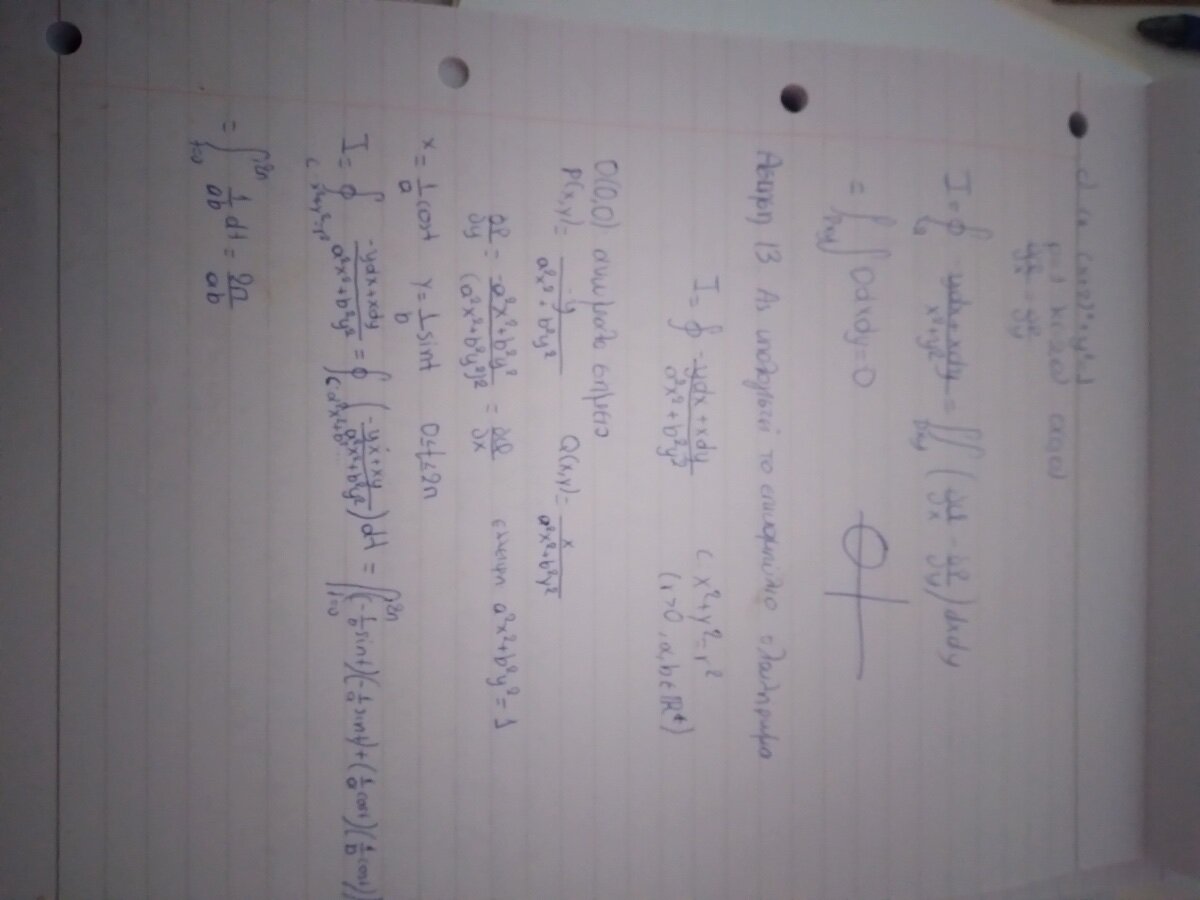 (x+2)² + y² = 1
∂Q/∂x = ∂P/∂y
I = ∮ (-ydx + xdy)/(x² + y²) = ∬ (∂Q/∂x - ∂P/∂y) dxdy
= ∬ 0dxdy = 0
Άσκηση 13 Να υπολογιστεί το επικαμπύλιο ολοκλήρωμα
I = ∮ (-ydx + xdy)/(a²x² + b²y²) C x² + y² = r²
(r>0, a,b ∈ ℝ⁺)
O(0,0) σημείο
P(x,y) = -y/(a²x² + b²y²) Q(x,y) = x/(a²x² + b²y²)
∂P/∂y = (-a²x² + b²y²)/(a²x² + b²y²)² = ∂Q/∂x έλλειψη a²x² + b²y² = 1
x = 1/a cost y = 1/b sint 0≤t≤2π
I = ∮ (-ydx + xdy)/(a²x² + b²y²) = ∮ (-yx + xy)/(a²x² + b²y²) dt = ∫ (-1/b sint)(-1/a sint) + (1/a cost)(1/b cost)
= ∫ 1/ab dt = 2π/ab